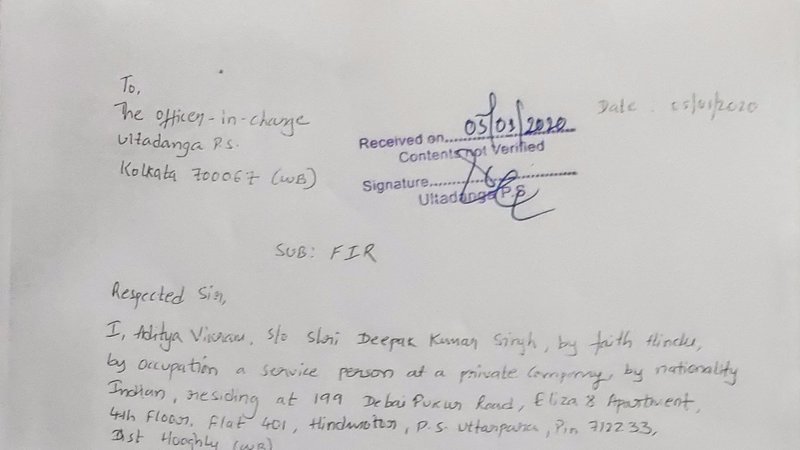 To,
The Officer-in-charge
Ultadanga P.S.
Kolkata 700067 (WB)
Date: 05/01/2020
Received on 05/01/2020
Contents not Verified
Signature
Ultadanga P.S
SUB: FIR
Respected Sir,
I, Aditya Vikram, S/o Shri Deepak Kumar Singh, by faith Hindu,
by occupation a service person at a private Company, by nationality
Indian, residing at 199 Debai Pukur Road, Eliza 8 Apartment,
4th Floor, Flat 401, Hindmotor, P.S. Uttarpara, Pin 712233,
Dist Hooghly (WB)